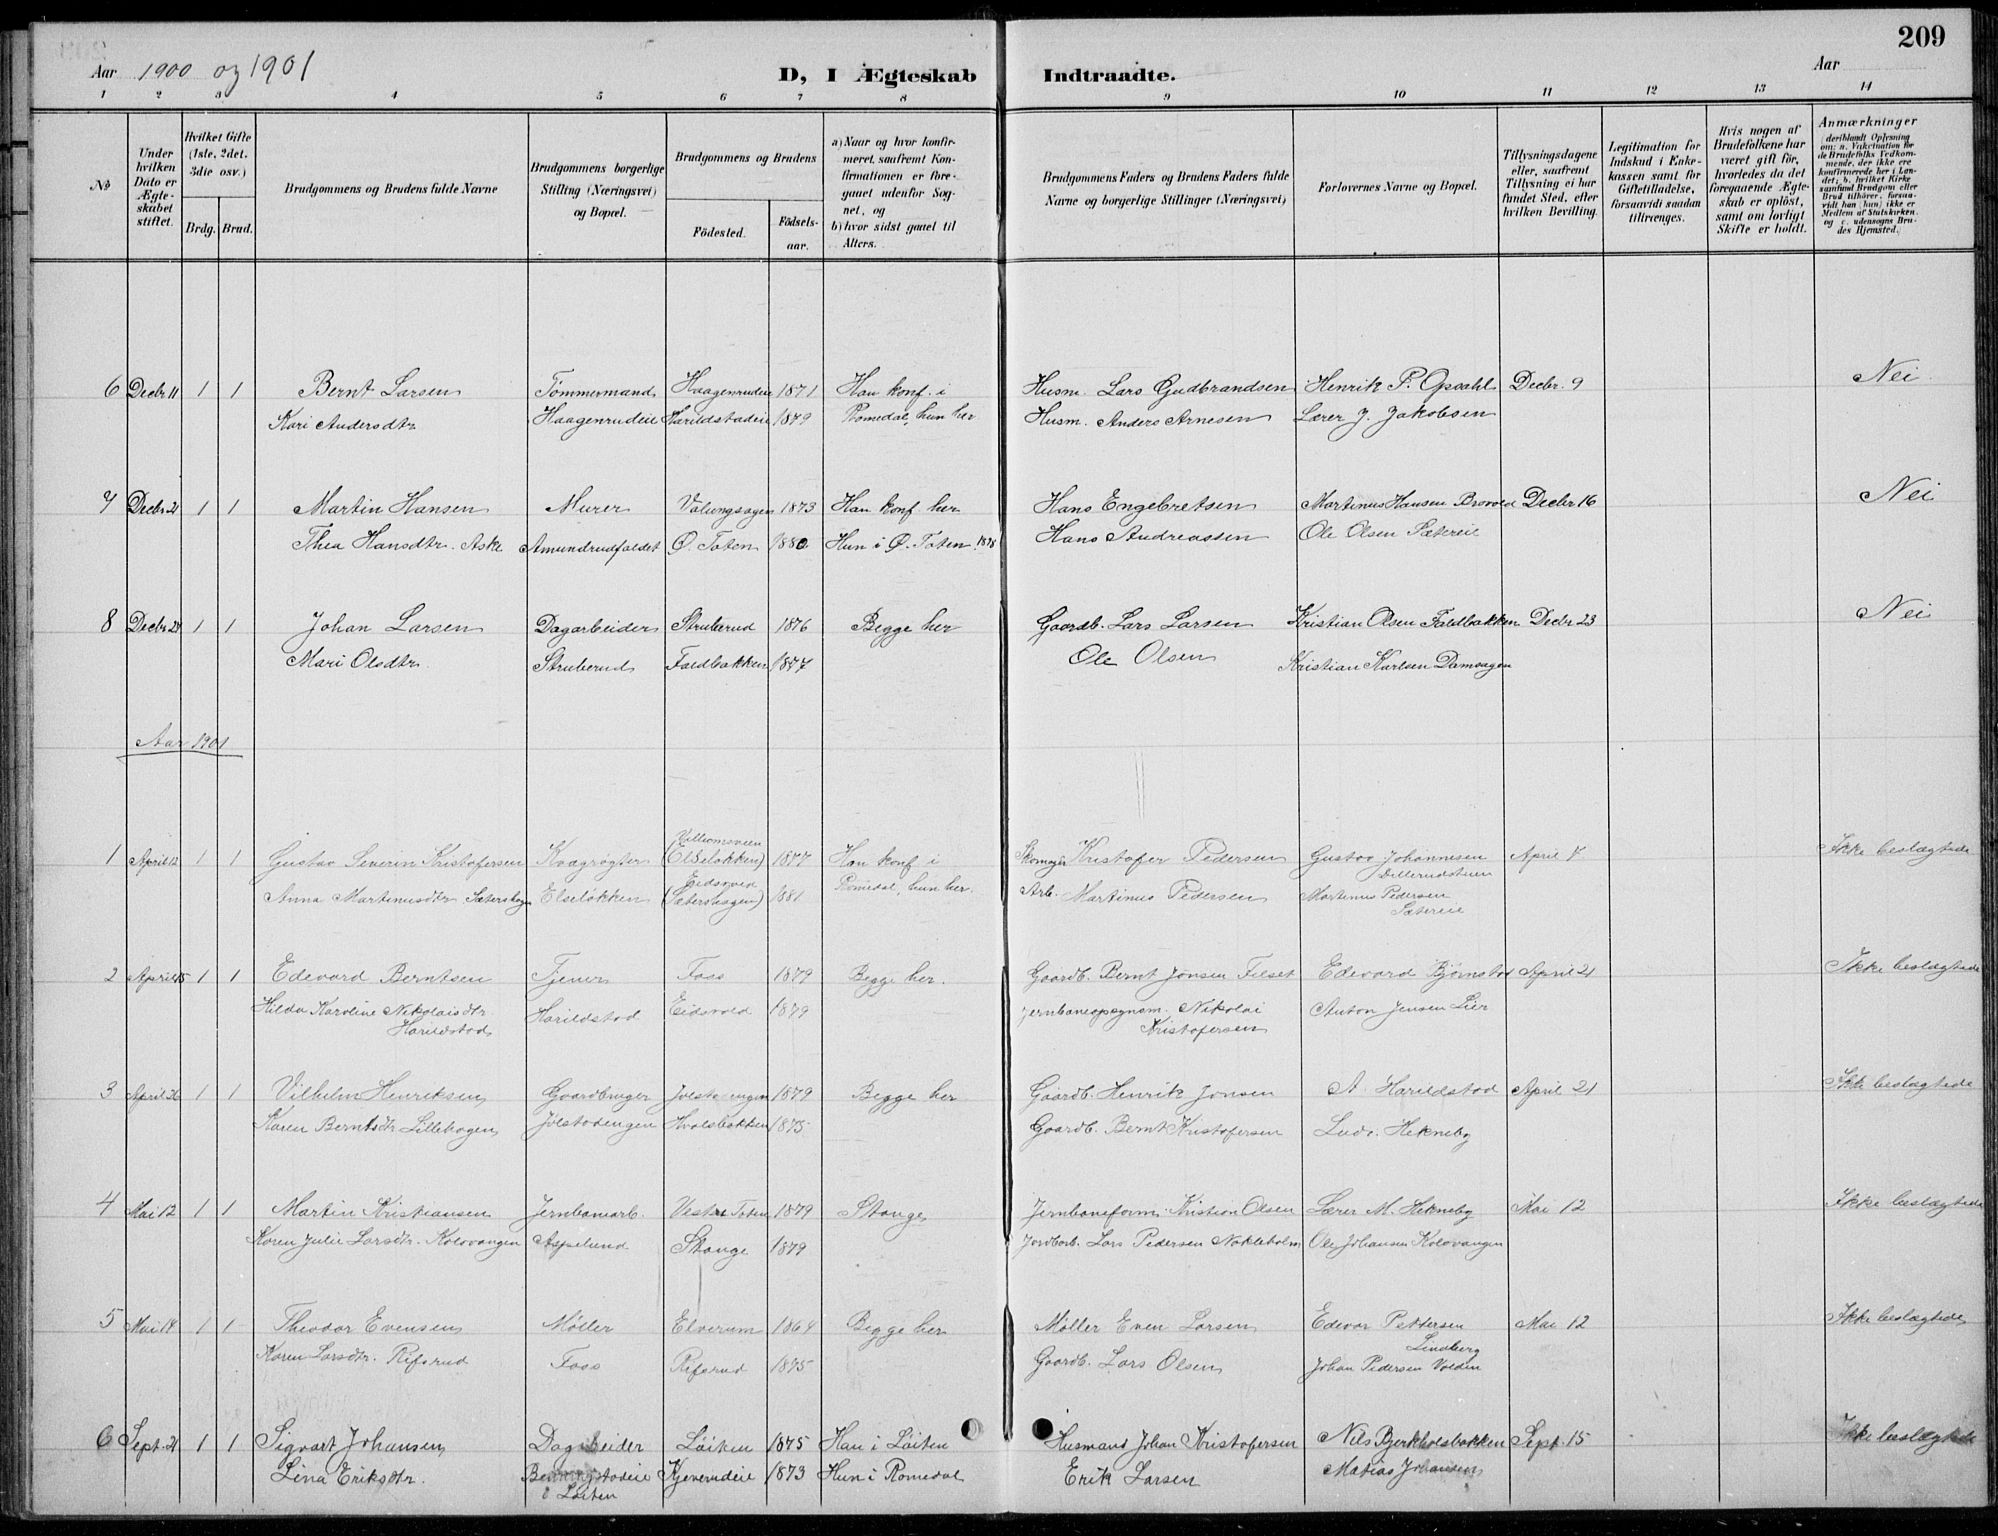 209
Aar 1900 og 1901
D, I Ægteskab Indtraadte.
Aar
1 2 3 4 5 6 7 8 9 10 11 12 13 14
No
Under hvilken Dato er Ægteskabet stiftet.
Hvilket Gifte (1ste, 2det, 3die osv.)
Brdg. Brud.
Brudgommens og Brudens fulde Navne
Brudgommens borgerlige Stilling (Næringsvei) og Bopæl.
Brudgommens og Brudens
Födested.
Födselsaar.
a) Naar og hvor konfirmeret, saafremt Konfirmationen er foregaaet udenfor Sognet, og
b) hvor sidst gaaet til Alters.
Brudgommens Faders og Brudens Faders fulde Navne og borgerlige Stillinger (Næringsvei)
Forlovernes Navne og Bopæl.
Tillysningsdagene eller, saafremt Tillysning ei har fundet Sted, efter hvilken Bevilling.
Legitimation for Indskud i Enkekassen samt for Giftetilladelse, forsaavidt saadan tiltrænges.
Hvis nogen af Brudefolkene har været gift för, hvorledes da det foregaaende Ægteskab er oplöst, samt om lovligt Skifte er holdt.
Anmærkninger
deriblandt Oplysning om: a. Vakcination for de Brudefolks Vedkommende, der ikke ere konfirmerede her i Landet; b. hvilket Kirkesamfund Brudgom eller Brud tilhörer, forsaavidt han (hun) ikke er Medlem af Statskirken. og c. udensogns Brudes Hjemsted.
6 Decbr 11 1 1 Bernt Larsen Tømmermand Haagenrudeie 1871 Han konf. i Husm. Lars Gudbrandsen Henrik P. Opsahl Decbr. 9 Nei
Kari Andersdtr Haagenrudeie Harildstadeie 1879 Romedal, hun her Husm. Anders Arnesen Lærer J. Jakobsen
7 Decbr 21 1 1 Martin Hansen Murer Valungsagen 1873 Han konf her Hans Engebretsen Martinus Hansen Brovold Decbr 16 Nei
Thea Hansdtr. Aske Amundrudfaldet Ø. Toten 1880 Hun i Ø. Toten Hans Andreassen Ole Olsen Sætereie
8 Decbr 28 1 1 Johan Larsen Dagarbeider Struberud 1876 Begge her Gaardb. Lars Larsen Kristian Olsen Faldbakken Decbr 23 Nei
Mari Olsdtr. Struberud Faldbakken 1877 Ole Olsen Kristian Karlsen Damsagen
Aar 1901
1 April 12 1 1 Gustav Severin Kristofersen Kvægrøgter (Elseløkken) 1877 Han konf i Skomager Kristofer Pedersen Gustav Johannesen April 7 Ikke beslægtede
Anna Martinusdtr Sætershagen Elseløkken Eidsvold (Sætershagen) 1881 Romedal, hun her. Arb. Martinus Pedersen Martinus Pedersen Sætereie
2 April 1 1 Edevard Berntsen Tjener Foss 1879 Begge her. Gaardb. Bernt Jonsen Filset Edevard Bjørnstad April 21 Ikke beslægtede
Hilda Karoline Nikolaisdtr. Harildstad Harildstad Eidsvold 1879 Jernbaneopsynsm. Nikolai Kristofersen Anton Jensen Lier
3 April 26 1 1 Vilhelm Henriksen Gaardbruger Jølstadengen 1879 Begge her Gaardb. Henrik Jonsen A. Harildstad April 21 Ikke beslægtede
Karen Berntsdtr Lillehagen Jølstadengen Hvolsbakken 1875 Gaardb. Bernt Kristofersen Ludv. Hekneby
4 Mai 12 1 1 Martin Kristiansen Jernbanearb. Vestre Toten 1879 Stange Jernbaneform. Kristian Olsen Lærer M. Hekneby Mai 12 Ikke beslægtede
Karen Julie Larsdtr. Kolovangen Aspelund Stange 1879 Jordbrb. Lars Pedersen Nøkleholm Ole Johansen Kolovangen
5 Mai 1 1 Theodor Evensen Møller Elverum 1864 Begge her Møller Even Larsen Edevar Pettersen Lindberg Mai 12 Ikke beslægtede
Karen Larsdtr. Rifsrud Foss Rifsrud 1875 Gaardb. Lars Olsen Johan Pedersen Volden
6 Sept. 21 1 1 Sigvart Johansen Dagarbeider Løiten 1875 Han i Løiten Husmand Johan Kristofersen Nils Bjerkholsbakken Sept. 15 Ikke beslægtede
Lina Eriksdtr. i Løiten Kjeverudeie 1873 Hun i Romedal Erik Larsen Matias Johansen